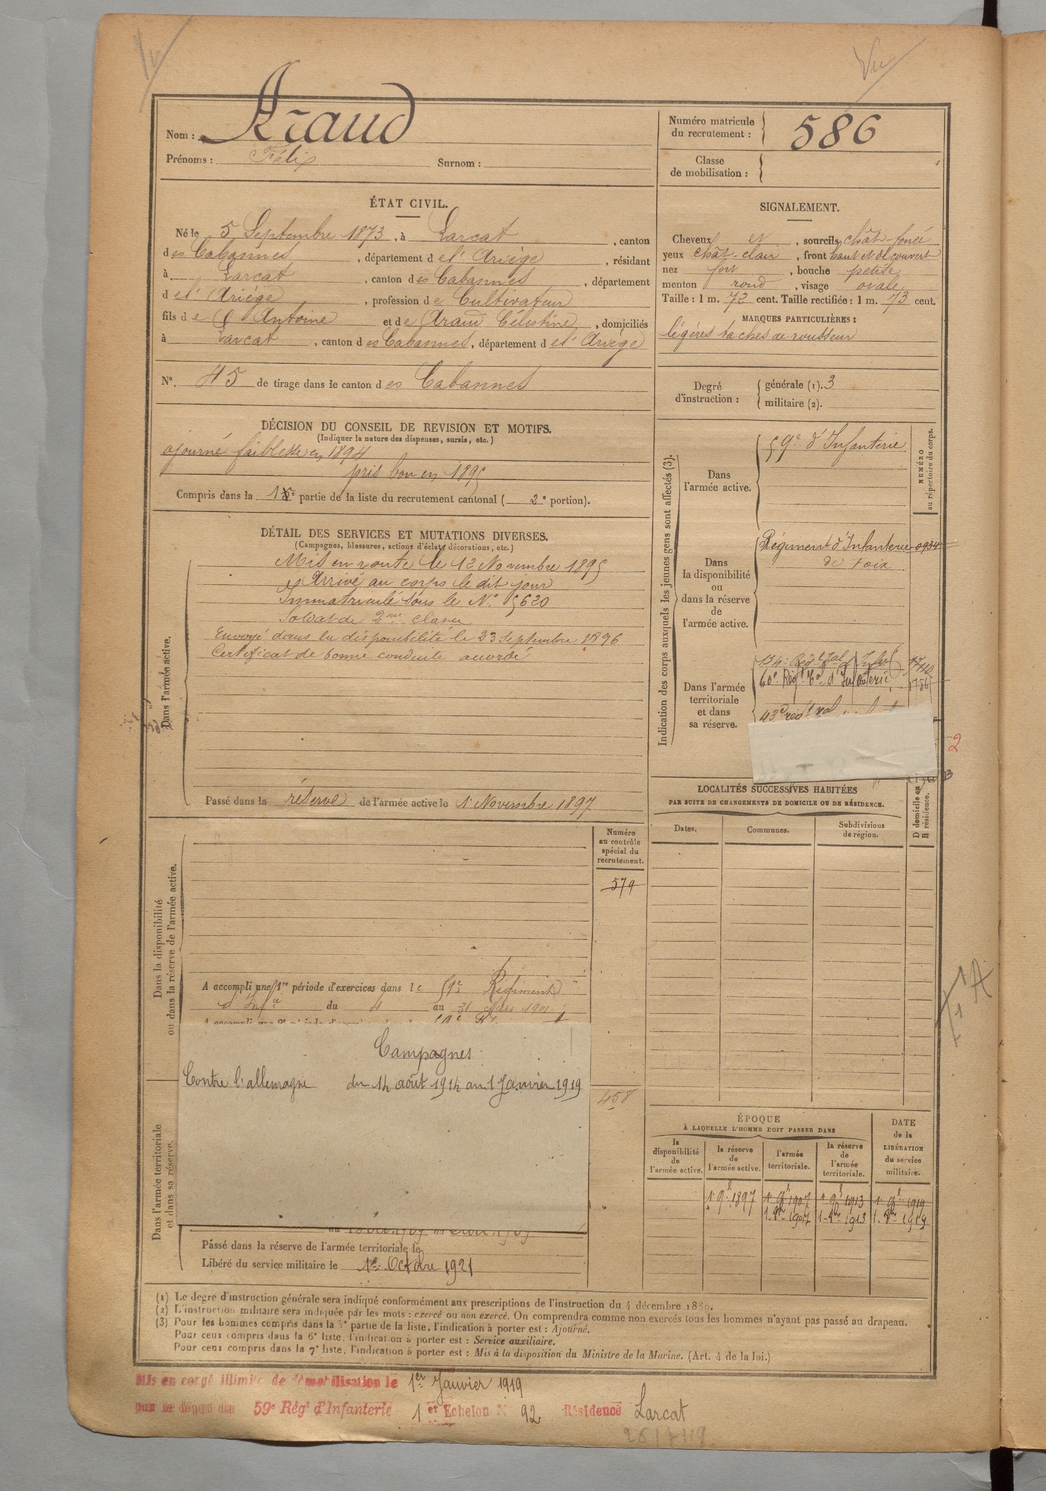 Vu
Nom : Araud
Prénoms : Félix Surnom :
Numéro matricule du recrutement : 586
Classe de mobilisation :
ÉTAT CIVIL.
Né le 5 Septembre 1873, à Larcat, canton
des Cabannes, département de l'Ariège, résidant
à Larcat, canton des Cabannes, département
de l'Ariège, profession de Cultivateur
fils de Antoine et de Araud Célestine, domiciliés
à Larcat, canton des Cabannes, département de l'Ariège
N° 45 de tirage dans le canton des Cabannes
SIGNALEMENT.
Cheveux et, sourcils chât-foncé
yeux chât-clair, front haut et découvert
nez fort, bouche petite
menton rond, visage ovale
Taille : 1 m. 72 cent. Taille rectifiée : 1 m. 73 cent.
MARQUES PARTICULIÈRES :
légères taches de rousseur
Degré d'instruction : générale (1). 3
militaire (2).
DÉCISION DU CONSEIL DE REVISION ET MOTIFS.
(Indiquer la nature des dispenses, sursis, etc.)
ajourné faiblesse en 1894
pris bon en 1895
Compris dans la 1re partie de la liste du recrutement cantonal ( 2e portion).
DÉTAIL DES SERVICES ET MUTATIONS DIVERSES.
(Campagnes, blessures, actions d'éclat, décorations, etc.)
Dans l'armée active.
Mis en route le 12 Novembre 1895
Arrivé au corps le dit jour
Immatriculé sous le N° 5620
Soldat de 2me classe
Envoyé dans la disponibilité le 23 Septembre 1896
Certificat de bonne conduite accordé
Passé dans la réserve de l'armée active le 1 Novembre 1897
Indication des corps auxquels les jeunes gens sont affectés (3).
NUMÉRO au répertoire du corps.
Dans l'armée active.
59e d'Infanterie
Dans la disponibilité ou dans la réserve de l'armée active.
Régiment d'Infanterie
de Foix
Dans l'armée territoriale et dans sa réserve.
134e Rég Tal Infie
60e Régt Tal d'Infanterie
2
LOCALITÉS SUCCESSIVES HABITÉES
PAR SUITE DE CHANGEMENTS DE DOMICILE OU DE RÉSIDENCE.
Dates. Communes. Subdivisions de région. D domicile ou R résidence.
Dans la disponibilité ou dans la réserve de l'armée active.
Numéro au contrôle spécial du recrutement.
579
A accompli une 1re période d'exercices dans le 59e Régiment
d'Infie du 4 au 31 1901
Campagnes
Contre l'allemagne du 14 août 1914 au 1 Janvier 1919
458
1 A
Dans l'armée territoriale et dans sa réserve.
Passé dans la réserve de l'armée territoriale le
Libéré du service militaire le 1er Octobre 1921
ÉPOQUE
À LAQUELLE L'HOMME DOIT PASSER DANS
la disponibilité de l'armée active.
la réserve de l'armée active.
l'armée territoriale.
la réserve de l'armée territoriale.
DATE de la LIBÉRATION du service militaire.
1 9 1897 1 9 1907 1 9 1913 1 9 1919
1 9bre 1907 1 9bre 1913 1 9bre 1919
(1) Le degré d'instruction générale sera indiqué conformément aux prescriptions de l'instruction du 4 décembre 1889.
(2) L'instruction militaire sera indiquée par les mots : exercé ou non exercé. On comprendra comme non exercés tous les hommes n'ayant pas passé au drapeau.
(3) Pour les hommes compris dans la 5e partie de la liste, l'indication à porter est : Ajourné.
Pour ceux compris dans la 6e liste, l'indication à porter est : Service auxiliaire.
Pour ceux compris dans la 7e liste, l'indication à porter est : Mis à la disposition du Ministre de la Marine. (Art. 4 de la loi.)
Mis en congé illimité de démobilisation le 1er Janvier 1919
par le dépôt du 59e Régt d'Infanterie 1er Echelon N° 92 Résidence Larcat